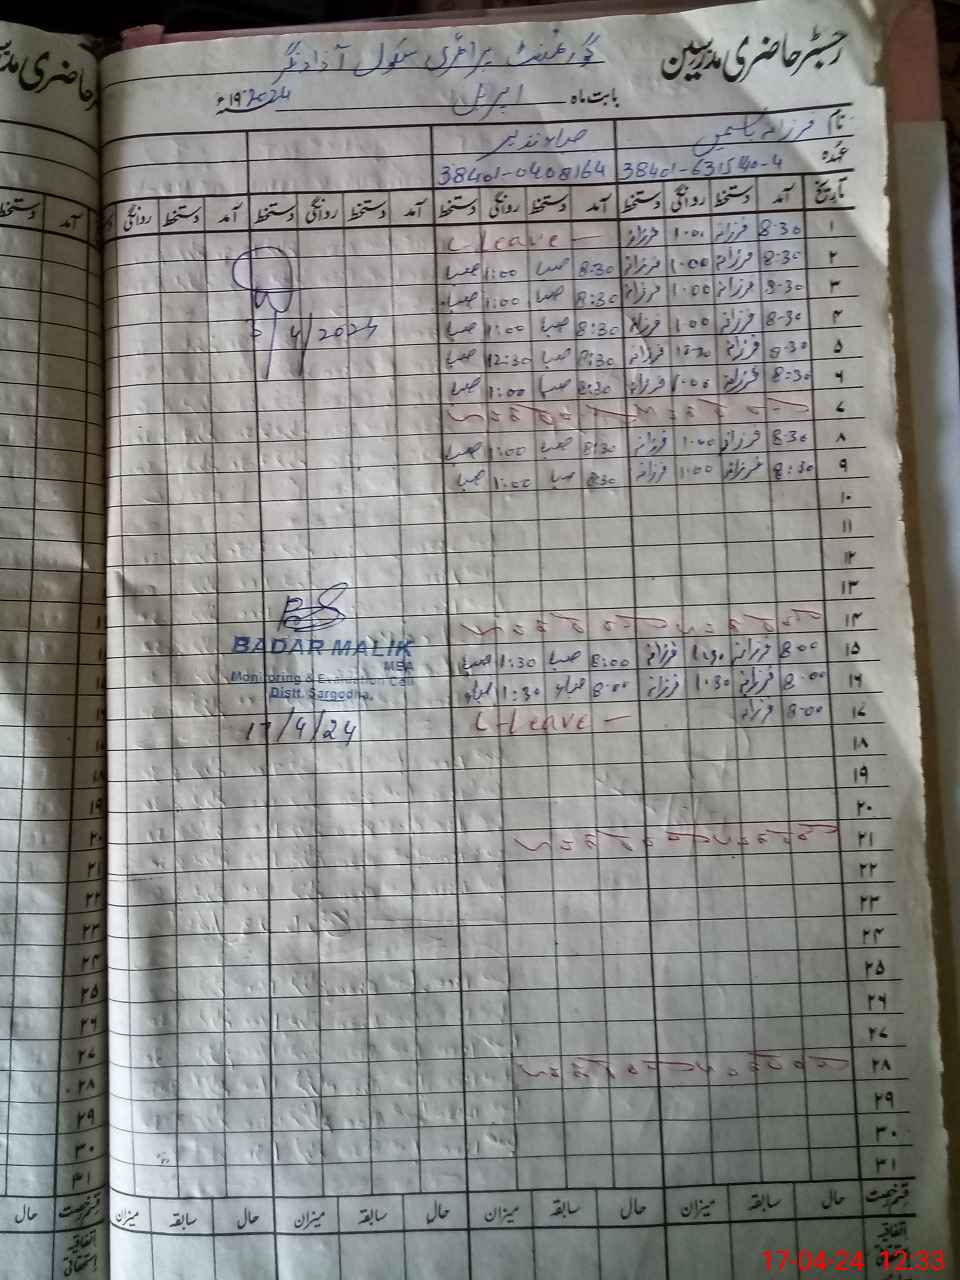 رجسٹر حاضری مدرسین
گورنمنٹ پرائمری سکول آزاد نگر
بابت ماہ اپریل ۱۹ 2024ء
نام فرزانہ یاسمین صبا نذیر
عہدہ 38401-631540-4 38401-0408164
تاریخ آمد دستخط روانگی دستخط آمد دستخط روانگی دستخط آمد دستخط روانگی دستخط آمد دستخط روانگی
۱ 8-30 فرزانہ 1.00 فرزانہ L-leave -
۲ 8-30 فرزانہ 1.00 فرزانہ 8-30 صبا 1:00 صبا
۳ 8-30 فرزانہ 1.00 فرزانہ 8:30 صبا 1:00 صبا
۴ 8-30 فرزانہ 1.00 فرزانہ 8:30 صبا 1:00 صبا
5/4/2024
۵ 8-30 فرزانہ فرزانہ 8:30 صبا 12:30 صبا
۶ 8:30 فرزانہ 1.00 فرزانہ 8:30 صبا 1:00 صبا
۷
۸ 8-30 فرزانہ 1.00 فرزانہ 8:30 صبا 1:00 صبا
۹ 8:30 فرزانہ 1:00 فرزانہ 8:30 صبا 1:00 صبا
۱۰
۱۱
۱۲
۱۳
۱۴
BADAR MALIK
MBA
Monitoring & Evaluation Cell
Distt. Sargodha.
17/4/24
۱۵ 8-00 فرزانہ 1.30 فرزانہ 8:00 صبا 1:30 صبا
۱۶ 8-00 فرزانہ 1.30 فرزانہ 8-00 صبا 1:30 صبا
۱۷ 8-00 فرزانہ L-leave -
۱۸
۱۹
۲۰
۲۱
۲۲
۲۳
۲۴
۲۵
۲۶
۲۷
۲۸
۲۹
۳۰
۳۱
قسم رخصت حال سابقہ میزان حال سابقہ میزان حال سابقہ میزان حال سابقہ میزان
اتفاقیہ
استحقاقی
17-04-24 12:33